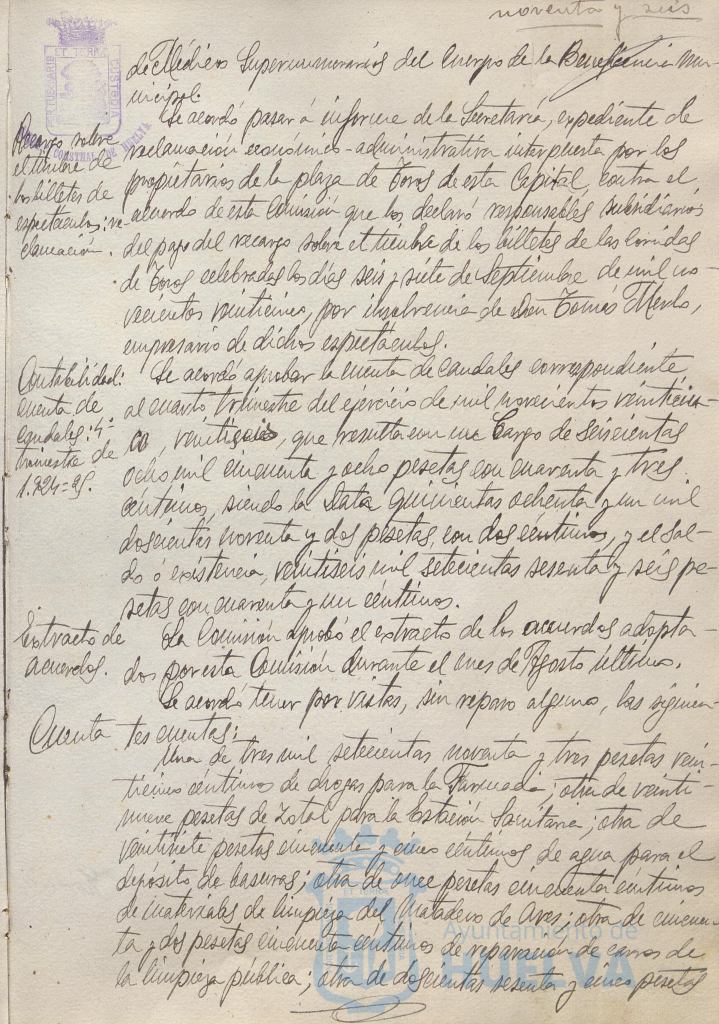 noventa y seis
de Médicos Supernumerarios del Cuerpo de la Beneficencia mu-
nicipal.
Se acordó pasar á informe de la Secretaría, expediente de
Recargo sobre
el timbre de
los billetes de
espectáculos: re-
clamación.
reclamación económico-administrativa interpuesta por los
propietarios de la plaza de Toros de esta Capital, contra el
acuerdo de esta Comisión que los declaró responsables subsidiarios
del pago del recargo sobre el timbre de los billetes de las corridas
de Toros celebradas los días seis y siete de Septiembre de mil no-
vecientos veinticinco, por insolvencia de Don Tomás
empresario de dichos espectáculos.
Contabilidad:
cuenta de
caudales: 4º
trimestre de
1.924-25.
Se acordó aprobar la cuenta de caudales correspondiente
al cuarto trimestre del ejercicio de mil novecientos veinticin-
co, veintiseis, que resulta con un Cargo de seiscientas
ocho mil cincuenta y ocho pesetas con cuarenta y tres
céntimos, siendo la Data quinientas ochenta y un mil
doscientas noventa y dos pesetas, con dos céntimos, y el sal-
do ó existencia, veintiseis mil setecientas sesenta y seis pe-
setas con cuarenta y un céntimos.
Extracto de
acuerdos.
La Comisión aprobó el extracto de los acuerdos adopta-
dos por esta Comisión durante el mes de Agosto último.
Se acordó tener por vistas, sin reparo alguno, las siguien-
Cuenta
tes cuentas:
Una de tres mil setecientas noventa y tres pesetas vein-
ticinco céntimos de drogas para la Farmacia; otra de veinti-
nueve pesetas de Zotal para la Estación Sanitaria; otra de
veintisiete pesetas cincuenta y cinco céntimos de agua para el
depósito de basuras; otra de once pesetas cincuenta céntimos
de materiales de limpieza del Matadero de Aves; otra de cincuen-
ta y dos pesetas cincuenta céntimos de reparación de carros de
la limpieza pública; otra de doscientas sesenta y cinco pesetas
Ayuntamiento de
HUELVA